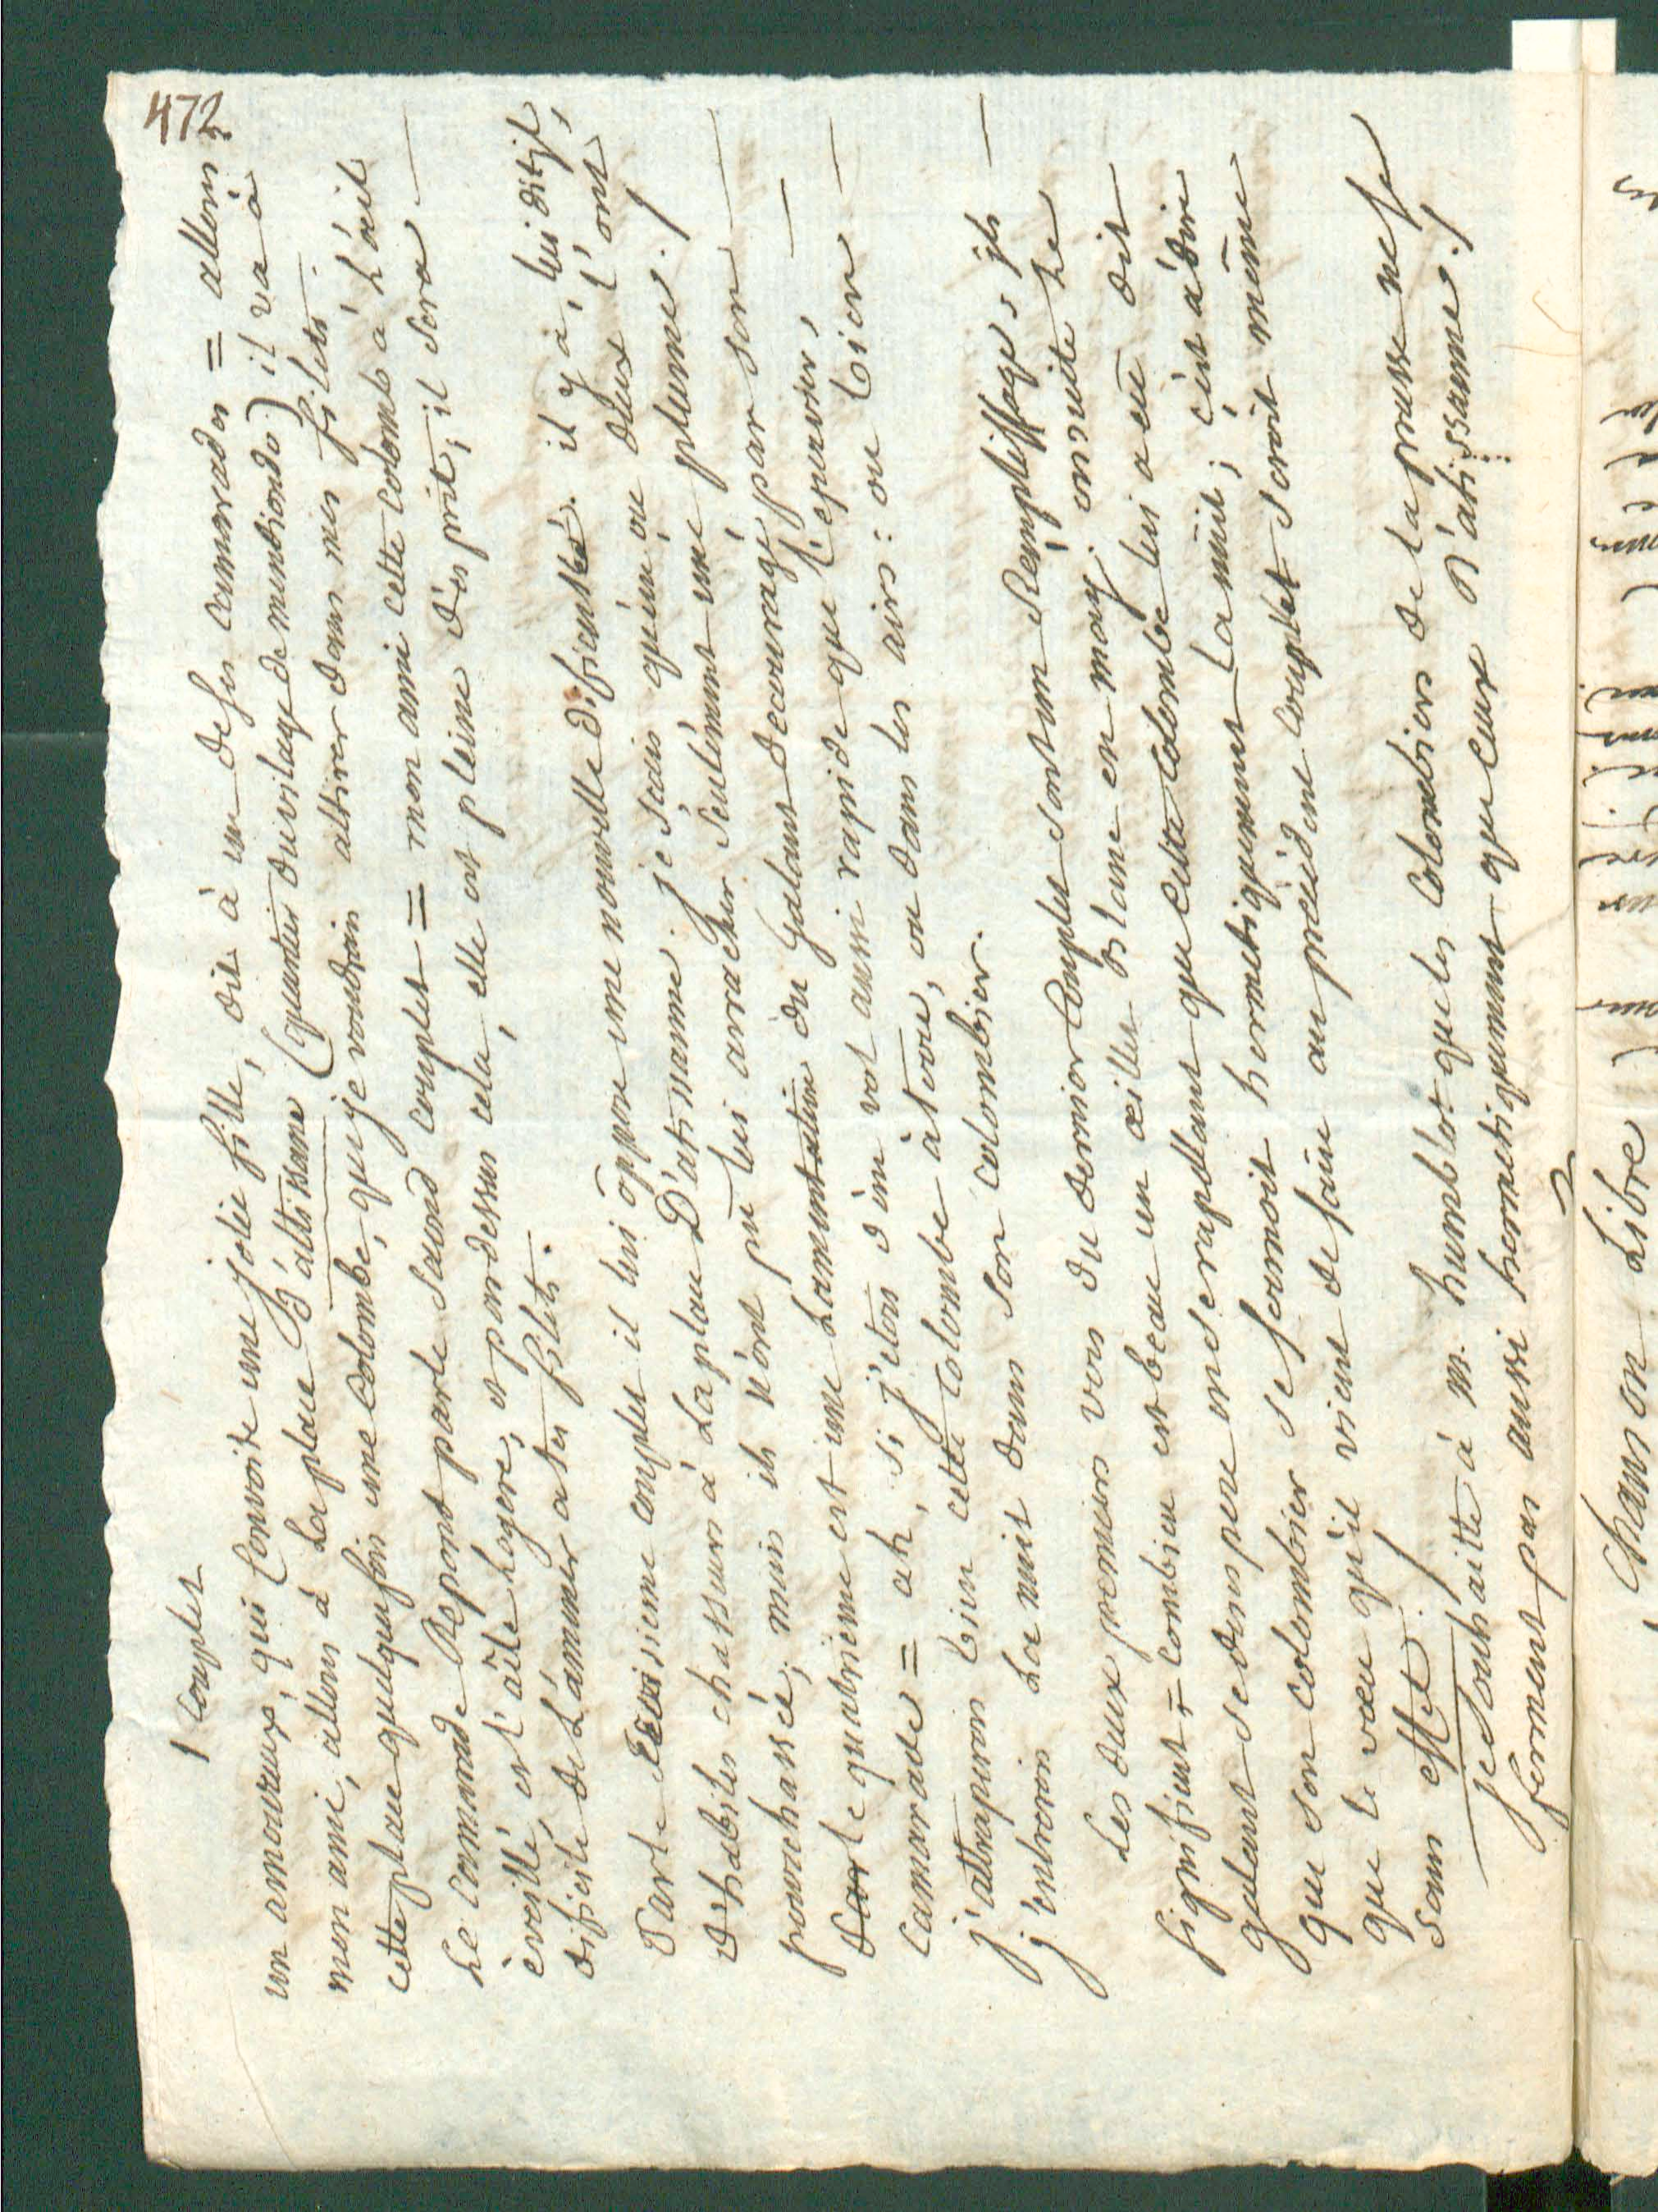 472
1 Couplet
un amoureux, qui Convoite une jolie fille, dit à un de ses camarades = allons
mon ami, allons à La place D'altissanne (quartier du vilage de mendiondo) il va à
cette place quelquefois une Colombe, que je voudrais attirer dans mes filets.
Le Camarade Répond par le Saxond couplet = mon ami cette colombe a L'œil
éveillé, et l'aîle Legere, et pardessus cela, elle est pleine d'esprit, il sera
dificile de L'amener a tes filets.
Par le troisieme couplet il lui oppose une nouvelle dificulté. il y à, lui dit-il,
d'habiles chasseurs à La place D'altissanne. je scais qu'un ou deux l'ont
pourchassée, mais ils n'ont pu lui arracher seulement une plume./
Par le quatrieme est une Lamentation du Galant decouragé par son
camarade = ah, si j'etois d'un vol aussi rapide que l'epervier,
j'attraperois bien cette Colombe à terre, ou dans les airs: ou bien
j'entrerois La nuit dans son colombier.
Les deux premiers vers du dernier Couplet sont un Remplissage; ils
signifient = Combien est beau un œillet Blanc en may. ensuite Le
galant se desespere en se rapellant que cette Colombe lui a eû dit
que son colombier se fermoit hermetiquement La nuit; c'est à dire
que le vœu qu'il vient de faire au précédent couplet seroit même
sans effet.
je souhaitte à M. humblot que les Colombiers de la prusse ne se
ferment pas aussi hermetiquement que ceux D'altissanne./
Chanson Libre